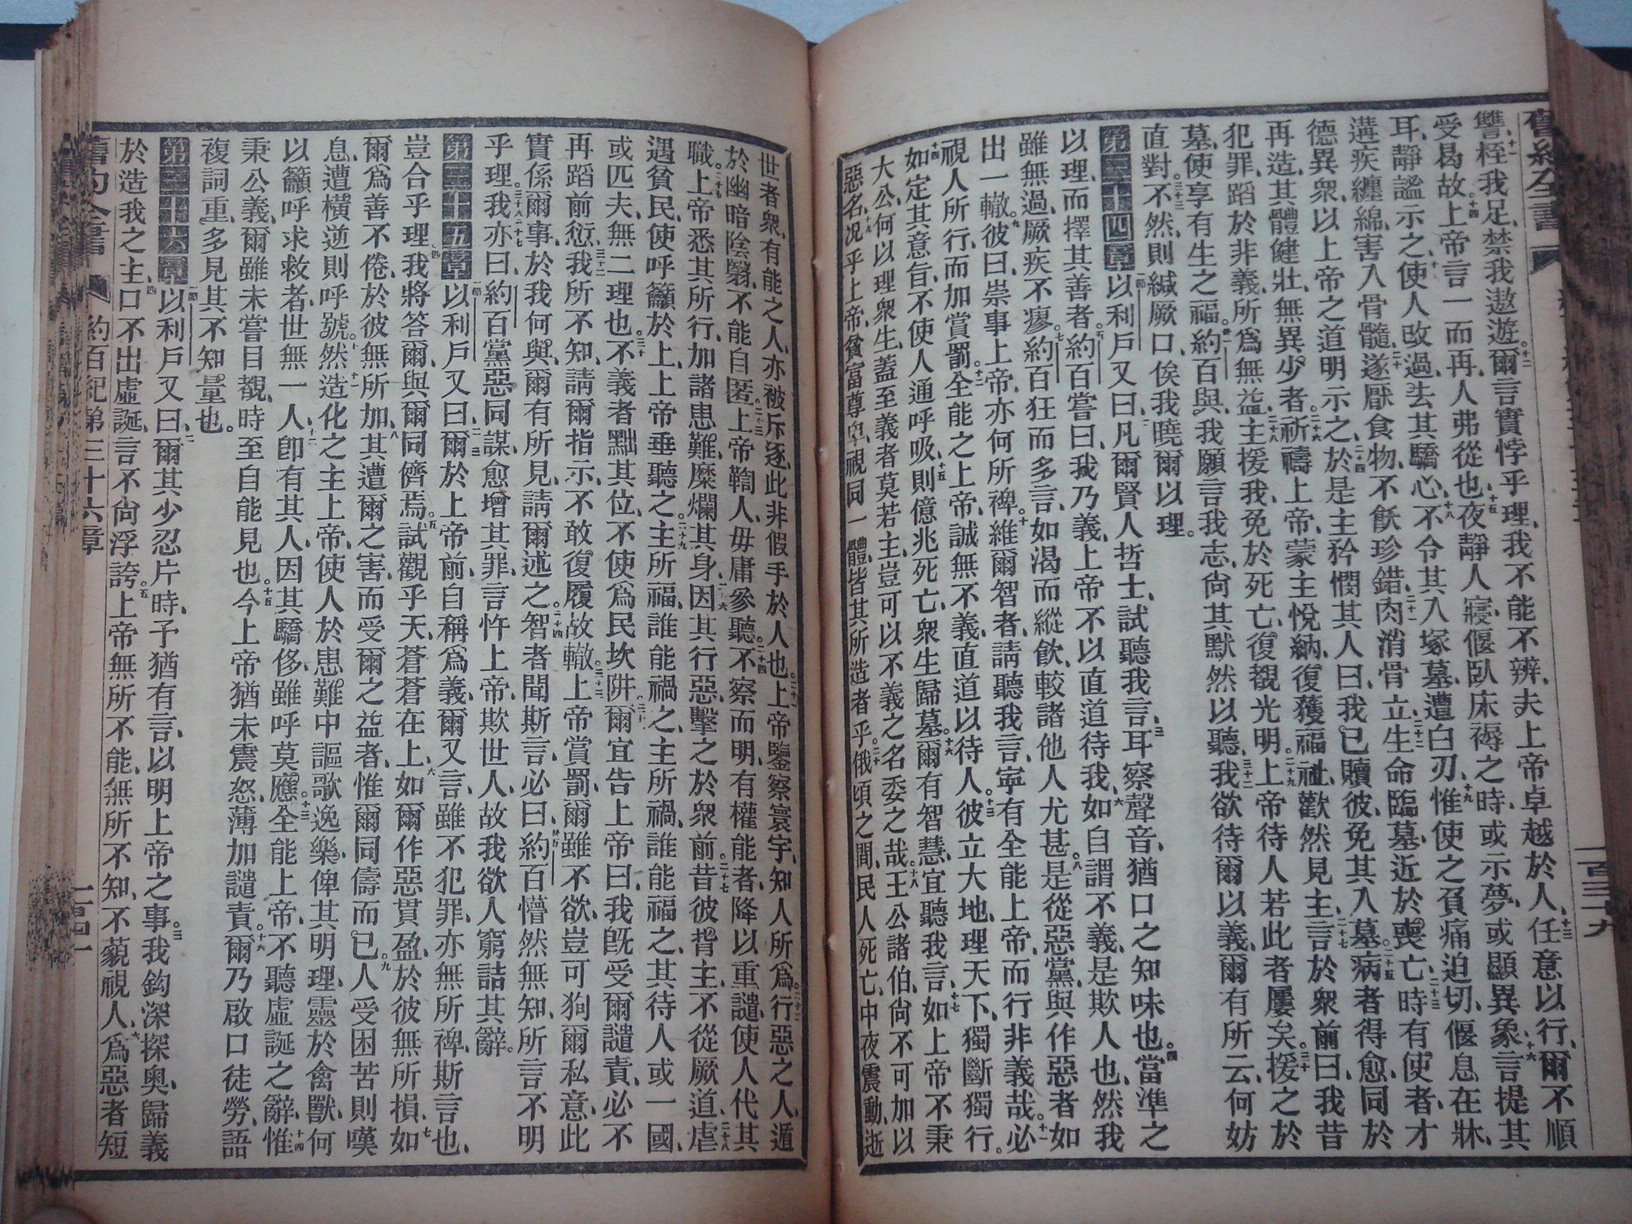 舊約全書
讐、桎我足、禁我遨遊、爾言實悖乎理、我不能不辨、夫上帝卓越於人、任意以行、爾不順
受曷故、上帝言一而再、人弗從也、夜靜人寢、偃臥床褥之時、或示夢、或顯異象、言提其
耳、靜謐示之、使人改過、去其驕心、不令其入塚墓、遭白刃、惟使之負痛迫切、偃息在牀、
遘疾纏綿、害入骨髓、遂厭食物、不飫珍錯、肉消骨立、生命臨墓、近於喪亡、時有使者、才
德異衆、以上帝之道、明示之、於是主矜憫其人曰、我已贖彼、免其入墓、病者得愈、同於
再造、其體健壯、無異少者、祈禱上帝、蒙主悅納、復獲福祉、歡然見主、言於衆前曰、我昔
犯罪、蹈於非義、所爲無益、主援我、免於死亡、復覩光明、上帝待人若此者屢矣、援之於
墓、使享有生之福、約百與、我願言我志、尙其默然以聽、我欲待爾以義、爾有所云、何妨
直對、不然則緘厥口、俟我曉爾以理。
第三十四章 以利戶又曰、凡爾賢人哲士、試聽我言、耳察聲音、猶口之知味也、當準之
以理、而擇其善者、約百嘗曰、我乃義、上帝不以直道待我、如自謂不義、是欺人也、然我
雖無過、厥疾不瘳、約百狂而多言、如渴而縱飮、較諸他人尤甚、是從惡黨、與作惡者如
出一轍、彼曰、崇事上帝、亦何所裨、維爾智者、請聽我言、寧有全能上帝、而行非義哉、必
視人所行、而加賞罰、全能之上帝、誠無不義、直道以待人、彼立大地、理天下、獨斷獨行、
如定其意旨、不使人通呼吸、則億兆死亡、衆生歸墓、爾有智慧、宜聽我言、如上帝不秉
大公、何以理衆生、蓋至義者莫若主、豈可以不義之名委之哉、王公諸伯、尙不可加以
惡名、况乎上帝、貧富尊卑、視同一體、皆其所造者乎、俄頃之間、民人死亡、中夜震動、逝
世者衆、有能之人、亦被斥逐、此非假手於人也、上帝鑒察寰宇、知人所爲、行惡之人、遁
於幽暗陰翳、不能自匿、上帝鞫人、毋庸參聽、不察而明、有權能者、降以重譴、使人代其
職、上帝悉其所行、加諸患難、糜爛其身、因其行惡、擊之於衆前、昔彼背主、不從厥道、虐
遇貧民、使呼籲於上、上帝垂聽之、主所福、誰能禍之、主所禍、誰能福之、其待人、或一國、
或匹夫、無二理也、不義者黜其位、不使爲民坎阱、爾宜告上帝曰、我旣受爾譴責、必不
再蹈前愆、我所不知、請爾指示、不敢復履故轍、上帝賞罰、爾雖不欲、豈可狥爾私意、此
實係爾事、於我何與、爾有所見、請爾述之、智者聞斯言、必曰、約百懵然無知、所言不明
乎理、我亦曰、約百黨惡同謀、愈增其罪、言忤上帝、欺世人、故我欲人窮詰其辭。
第三十五章 以利戶又曰、爾於上帝前、自稱爲義、爾又言雖不犯罪、亦無所裨、斯言也、
豈合乎理、我將答爾、與爾同儕焉、試觀乎天、蒼蒼在上、如爾作惡貫盈、於彼無所損、如
爾爲善不倦、於彼無所加、其遭爾之害、而受爾之益者、惟爾同儔而已、人受困苦則嘆
息、遭橫逆則呼號、然造化之主上帝、使人於患難中謳歌逸樂、俾其明理、靈於禽獸、何
以籲呼求救者、世無一人、卽有其人、因其驕侈、雖呼莫應、全能上帝、不聽虛誕之辭、惟
秉公義、爾雖未嘗目覩、時至自能見也、今上帝猶未震怒、薄加譴責、爾乃啟口徒勞、語
複詞重、多見其不知量也。
第三十六章 以利戶又曰、爾其少忍片時、予猶有言、以明上帝之事、我鈎深探奧、歸義
於造我之主、口不出虛誕、言不尙浮誇、上帝無所不能、無所不知、不藐視人、爲惡者短
舊約全書 約百紀第三十六章